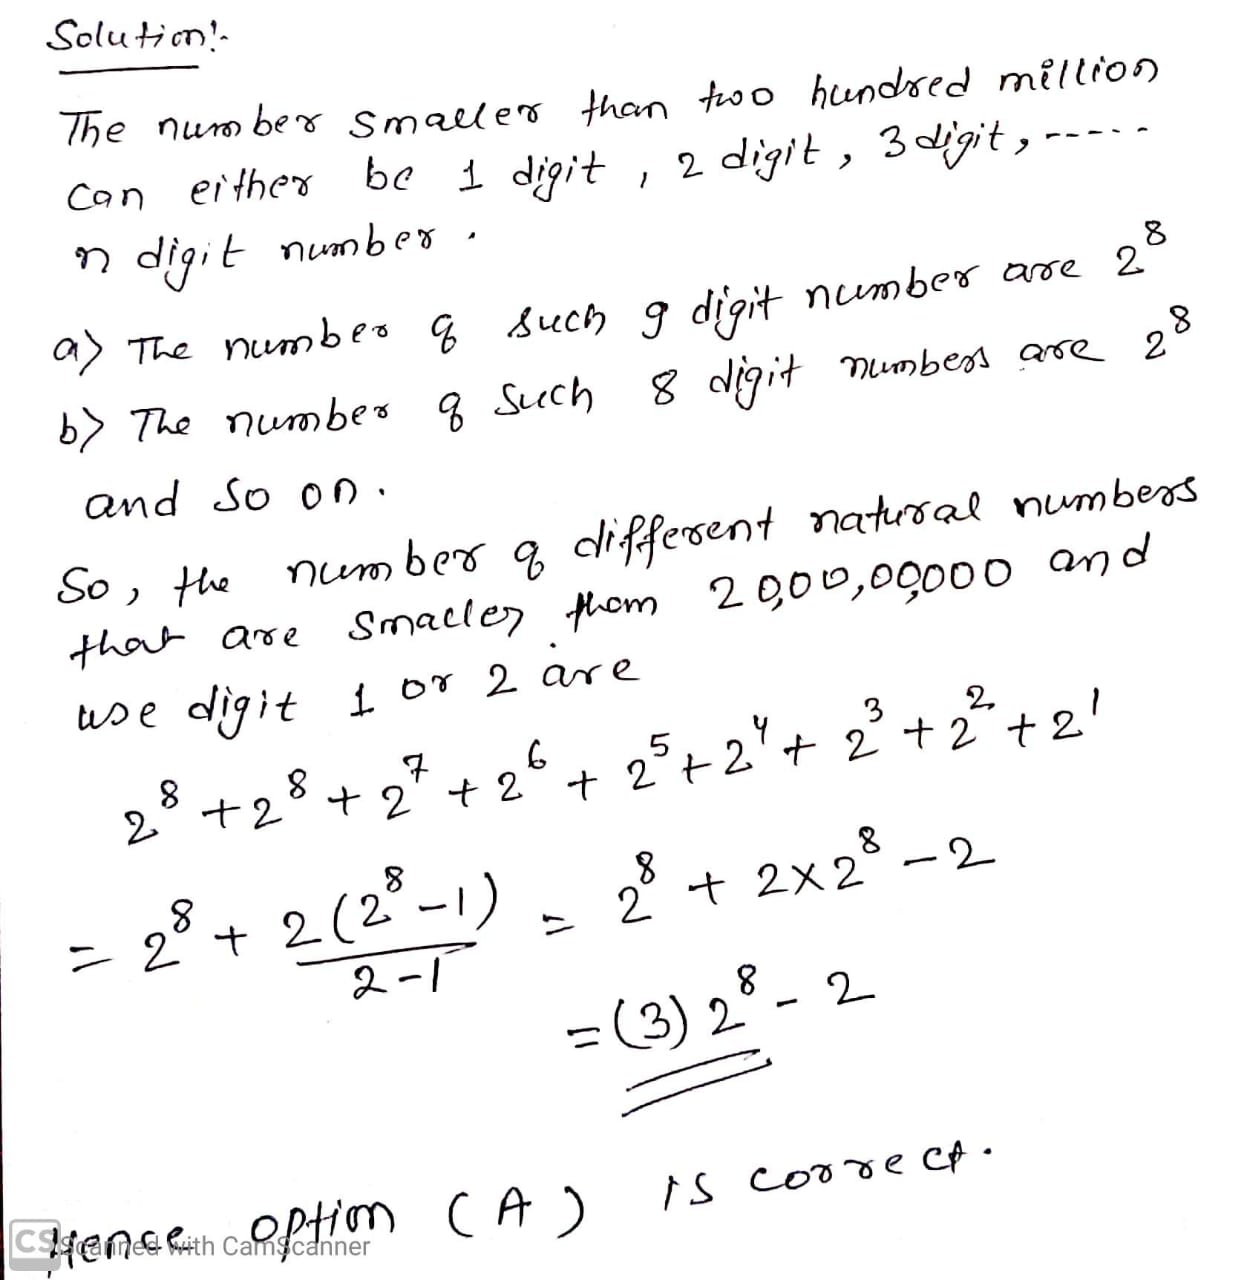 Solution:-
The number smaller than two hundred million
can either be 1 digit, 2 digit, 3 digit, -----
n digit number.
a) The number of such 9 digit number are 2⁸
b) The number of such 8 digit numbers are 2⁸
and so on.
So, the number of different natural numbers
that are smaller than 20,00,00,000 and
use digit 1 or 2 are
2⁸ + 2⁸ + 2⁷ + 2⁶ + 2⁵ + 2⁴ + 2³ + 2² + 2¹
= 2⁸ + 2(2⁸ - 1) / 2 - 1 = 2⁸ + 2×2⁸ - 2
= (3) 2⁸ - 2
Hence option (A) is correct.
CS Scanned with CamScanner